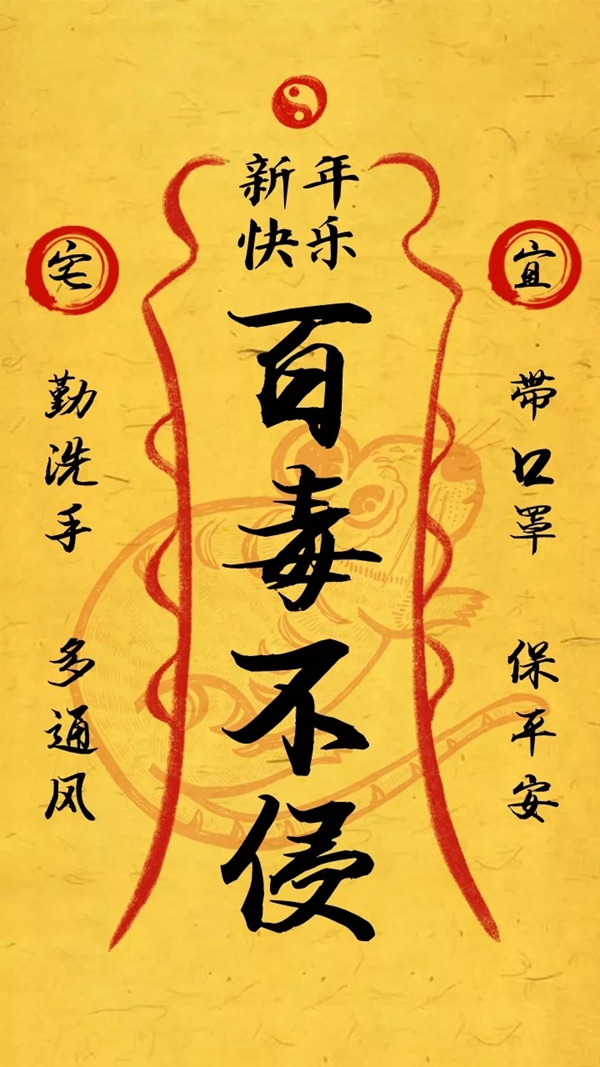 新年
快乐
百毒不侵
宜
带口罩
保平安
宅
勤洗手
多通风